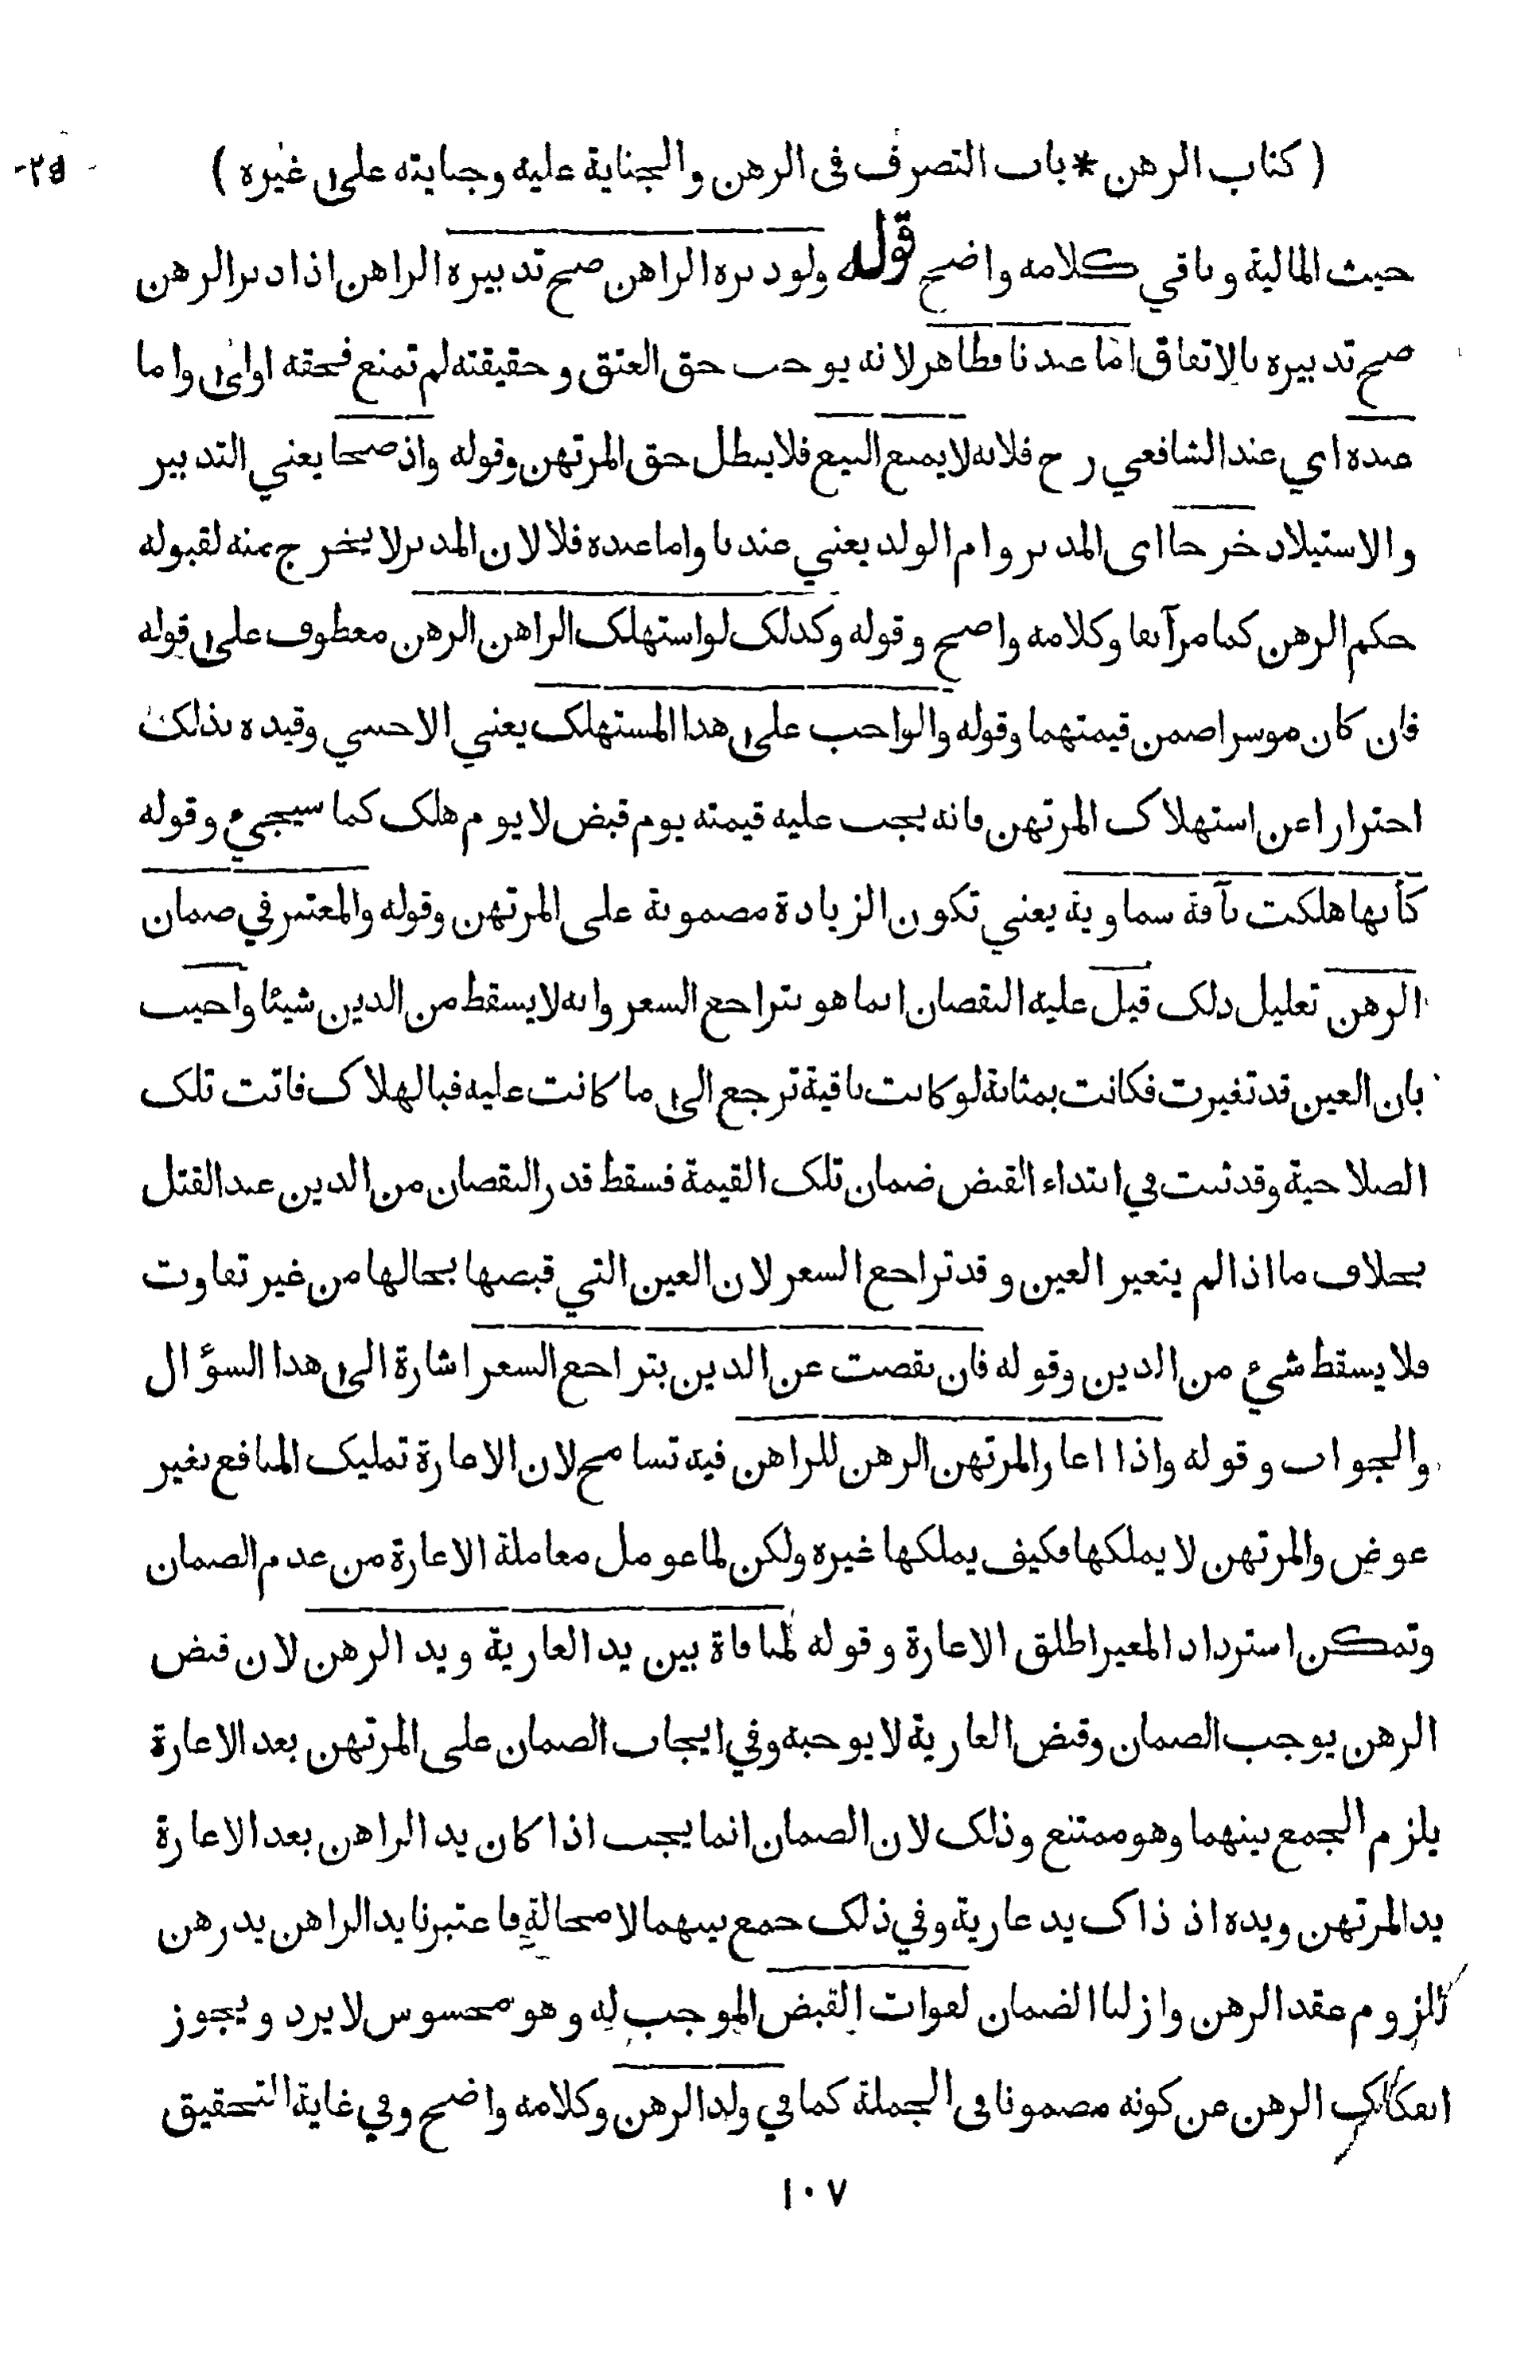 ( كتاب الرهن * باب التصرف فى الرهن والجناية عليه وجنايته على غيره )
حيث المالية وباقي كلامه واضح قوله ولو دبره الراهن صح تدبيره الراهن اذا دبر الرهن
صح تدبيره بالاتفاق اما عندنا فظاهر لانه يوجب حق العتق وحقيقته لم تمنع فحقه اولى واما
عنده اي عند الشافعي رح فلانه لا يمنع البيع فلا يبطل حق المرتهن وقوله واذ صحا يعني التدبير
والاستيلاد خرجا اى المدبر وام الولد يعني عندنا واما عنده فلا لان المدبر لا يخرج منه لقبوله
حكم الرهن كما مر آنفا وكلامه واضح وقوله وكذلك لو استهلك الراهن الرهن معطوف على قوله
فان كان موسرا ضمن قيمتهما وقوله والواجب على هذا المستهلك يعني الاجنبي وقيده بذلك
احترازا عن استهلاك المرتهن فانه يجب عليه قيمته يوم قبض لا يوم هلك كما سيجيء وقوله
كأنها هلكت بآفة سماوية يعني تكون الزيادة مضمونة على المرتهن وقوله والمعتبر في ضمان
الرهن تعليل ذلك قيل عليه النقصان انما هو بتراجع السعر وانه لا يسقط من الدين شيئا واجيب
بان العين قد تغيرت فكانت بمثابة لو كانت باقية ترجع الى ما كانت عليه فبالهلاك فاتت تلك
الصلاحية وقد ثبت في ابتداء القبض ضمان تلك القيمة فسقط قدر النقصان من الدين عند القتل
بخلاف ما اذا لم يتغير العين وقد تراجع السعر لان العين التي قبضها بحالها من غير تفاوت
فلا يسقط شيء من الدين وقوله فان نقصت عن الدين بتراجع السعر اشارة الى هذا السؤال
والجواب وقوله واذا اعار المرتهن الرهن للراهن فيه تسامح لان الاعارة تمليك المنافع بغير
عوض والمرتهن لا يملكها فكيف يملكها غيره ولكن لما عومل معاملة الاعارة من عدم الضمان
وتمكن استرداد المعير اطلق الاعارة وقوله لمنافاة بين يد العارية ويد الرهن لان قبض
الرهن يوجب الضمان وقبض العارية لا يوجبه وفي ايجاب الضمان على المرتهن بعد الاعارة
يلزم الجمع بينهما وهو ممتنع وذلك لان الضمان انما يجب اذا كان يد الراهن بعد الاعارة
يد المرتهن ويده اذ ذاك يد عارية وفي ذلك جمع بينهما لا محالة فاعتبرنا يد الراهن يد رهن
للزوم عقد الرهن وازلنا الضمان لفوات القبض الموجب له وهو محسوس لا يرد ويجوز
انفكاك الرهن عن كونه مضمونا فى الجملة كما في ولد الرهن وكلامه واضح وفي غاية التحقيق
١٠٧